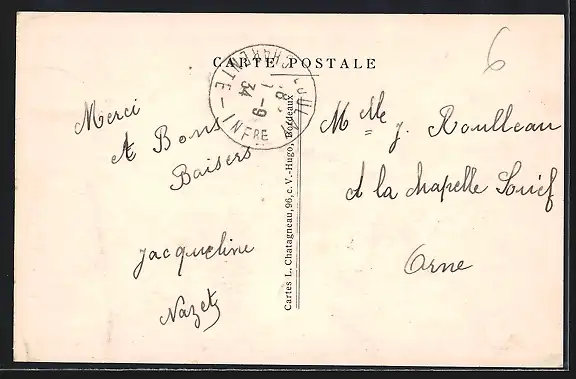 CARTE POSTALE
6
CHARENTE-INFRE
18
1 -9
34
Merci
et Bons
Baisers
Jacqueline
Nazetz
Cartes L. Chatagneau, 96, c. V.-Hugo, Bordeaux
Melle J. Roulleau
à la Chapelle Souëf
Orne